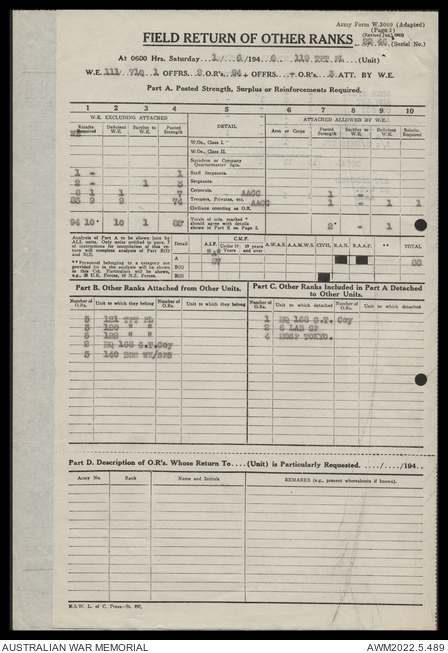 Army Form W.3009 (Adapted)
(Page 1)
(Revised Jan., 1943)
(Serial No.)
FIELD RETURN OF OTHER RANKS
At 0600 Hrs. Saturday 1/6/194 6 119 TPT PL (Unit)
W.E. 111/71Q/1 OFFRS. 2 O.R's. 94 + OFFRS. - O.R's. 2 ATT. BY W.E.
Part A. Posted Strength, Surplus or Reinforcements Required.
1 2 3 4 5 6 7 8 9 10
W.E. EXCLUDING ATTACHED DETAIL ATTACHED ALLOWED BY W.E.
Reinfts. Required Deficient W.E. Surplus to W.E. Posted Strength Arm or Corps Posted Strength Surplus to W.E. Deficient W.E. Reinfts. Required
W.Os., Class I.
W.Os., Class II.
Squadron or Company Quartermaster Sgts.
1 - 1 Staff Sergeants.
2 - 1 3 Sergeants.
1 7 Corporals. AACC 1 -
9 9 74 Troopers, Privates, etc. AACC 1 - 1 1
Civilians counting as O.R.
94 10* 10 1 Totals of cols. marked * should agree with details shown in Part E on Page 2. 2* - 1
Analysis of Part A to be shown here by ALL units. Only units notified in para. 7 of instructions for compilation of this return will complete analysis of Part B(2) and B(3).
** Personnel belonging to a category not provided for in the analysis will be shown in this Col. Particulars will be shown, e.g., 20 U.K. Forces, 10 N.Z. Forces.
Detail A.I.F. C.M.F. Under 19 Years 19 years and over A.W.A.S. A.A.M.W.S. CIVIL R.A.N. R.A.A.F. ** TOTAL
A 87 88
B(2)
B(3)
Part B. Other Ranks Attached from Other Units.
Number of O.Rs. Unit to which they belong Number of O.Rs. Unit to which they belong
5 121 TPT PL
3 120 " "
5 122 " "
2 HQ 168 G.T.Coy
3 140 BDE WK/SPS
Part C. Other Ranks Included in Part A Detached to Other Units.
Number of O.Rs. Unit to which detached Number of O.Rs. Unit to which detached
1 HQ 168 G.T. Coy
2 6 LAB GP
4 HOSP TOKYO.
Part D. Description of O.R's. Whose Return To....(Unit) is Particularly Requested. ..../..../194..
Army No. Rank Name and Initials REMARKS (e.g., present whereabouts if known).
N.S.W. L. of C. Press
AUSTRALIAN WAR MEMORIAL AWM2022.5.480